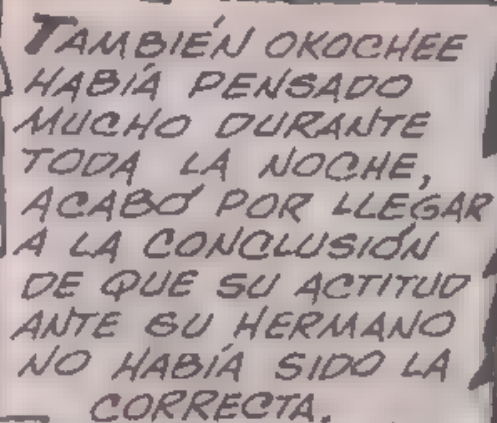 TAMBIÉN OKOCHEE
HABÍA PENSADO
MUCHO DURANTE
TODA LA NOCHE,
ACABÓ POR LLEGAR
A LA CONCLUSIÓN
DE QUE SU ACTITUD
ANTE SU HERMANO
NO HABÍA SIDO LA
CORRECTA.